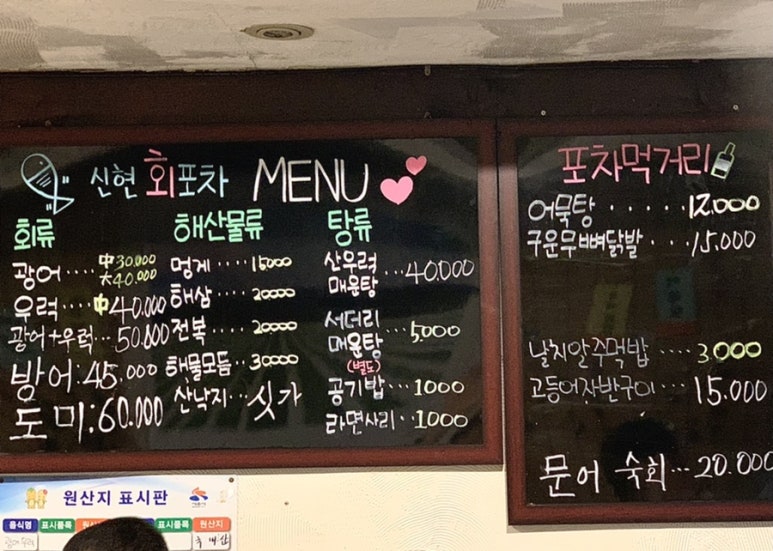 신현 회포차 MENU
회류
광어····中30.000
大40.000
우럭····中40.000
광어+우럭··50.000
방어:45.000
도미:60.000
해산물류
멍게····15000
해삼····20000
전복····20000
해물모듬··30000
산낙지···싯가
탕류
산우럭
매운탕···40.000
서더리
매운탕···5.000
(별도)
공기밥··1000
라면사리··1000
포차먹거리
어묵탕·····12.000
구운무뼈닭발····15,000
날치알주먹밥····3000
고등어자반구이···15.000
문어 숙회···20.000
원산지 표시판
음식명 표시품목 원산지 표시품목 원산지
광어우럭